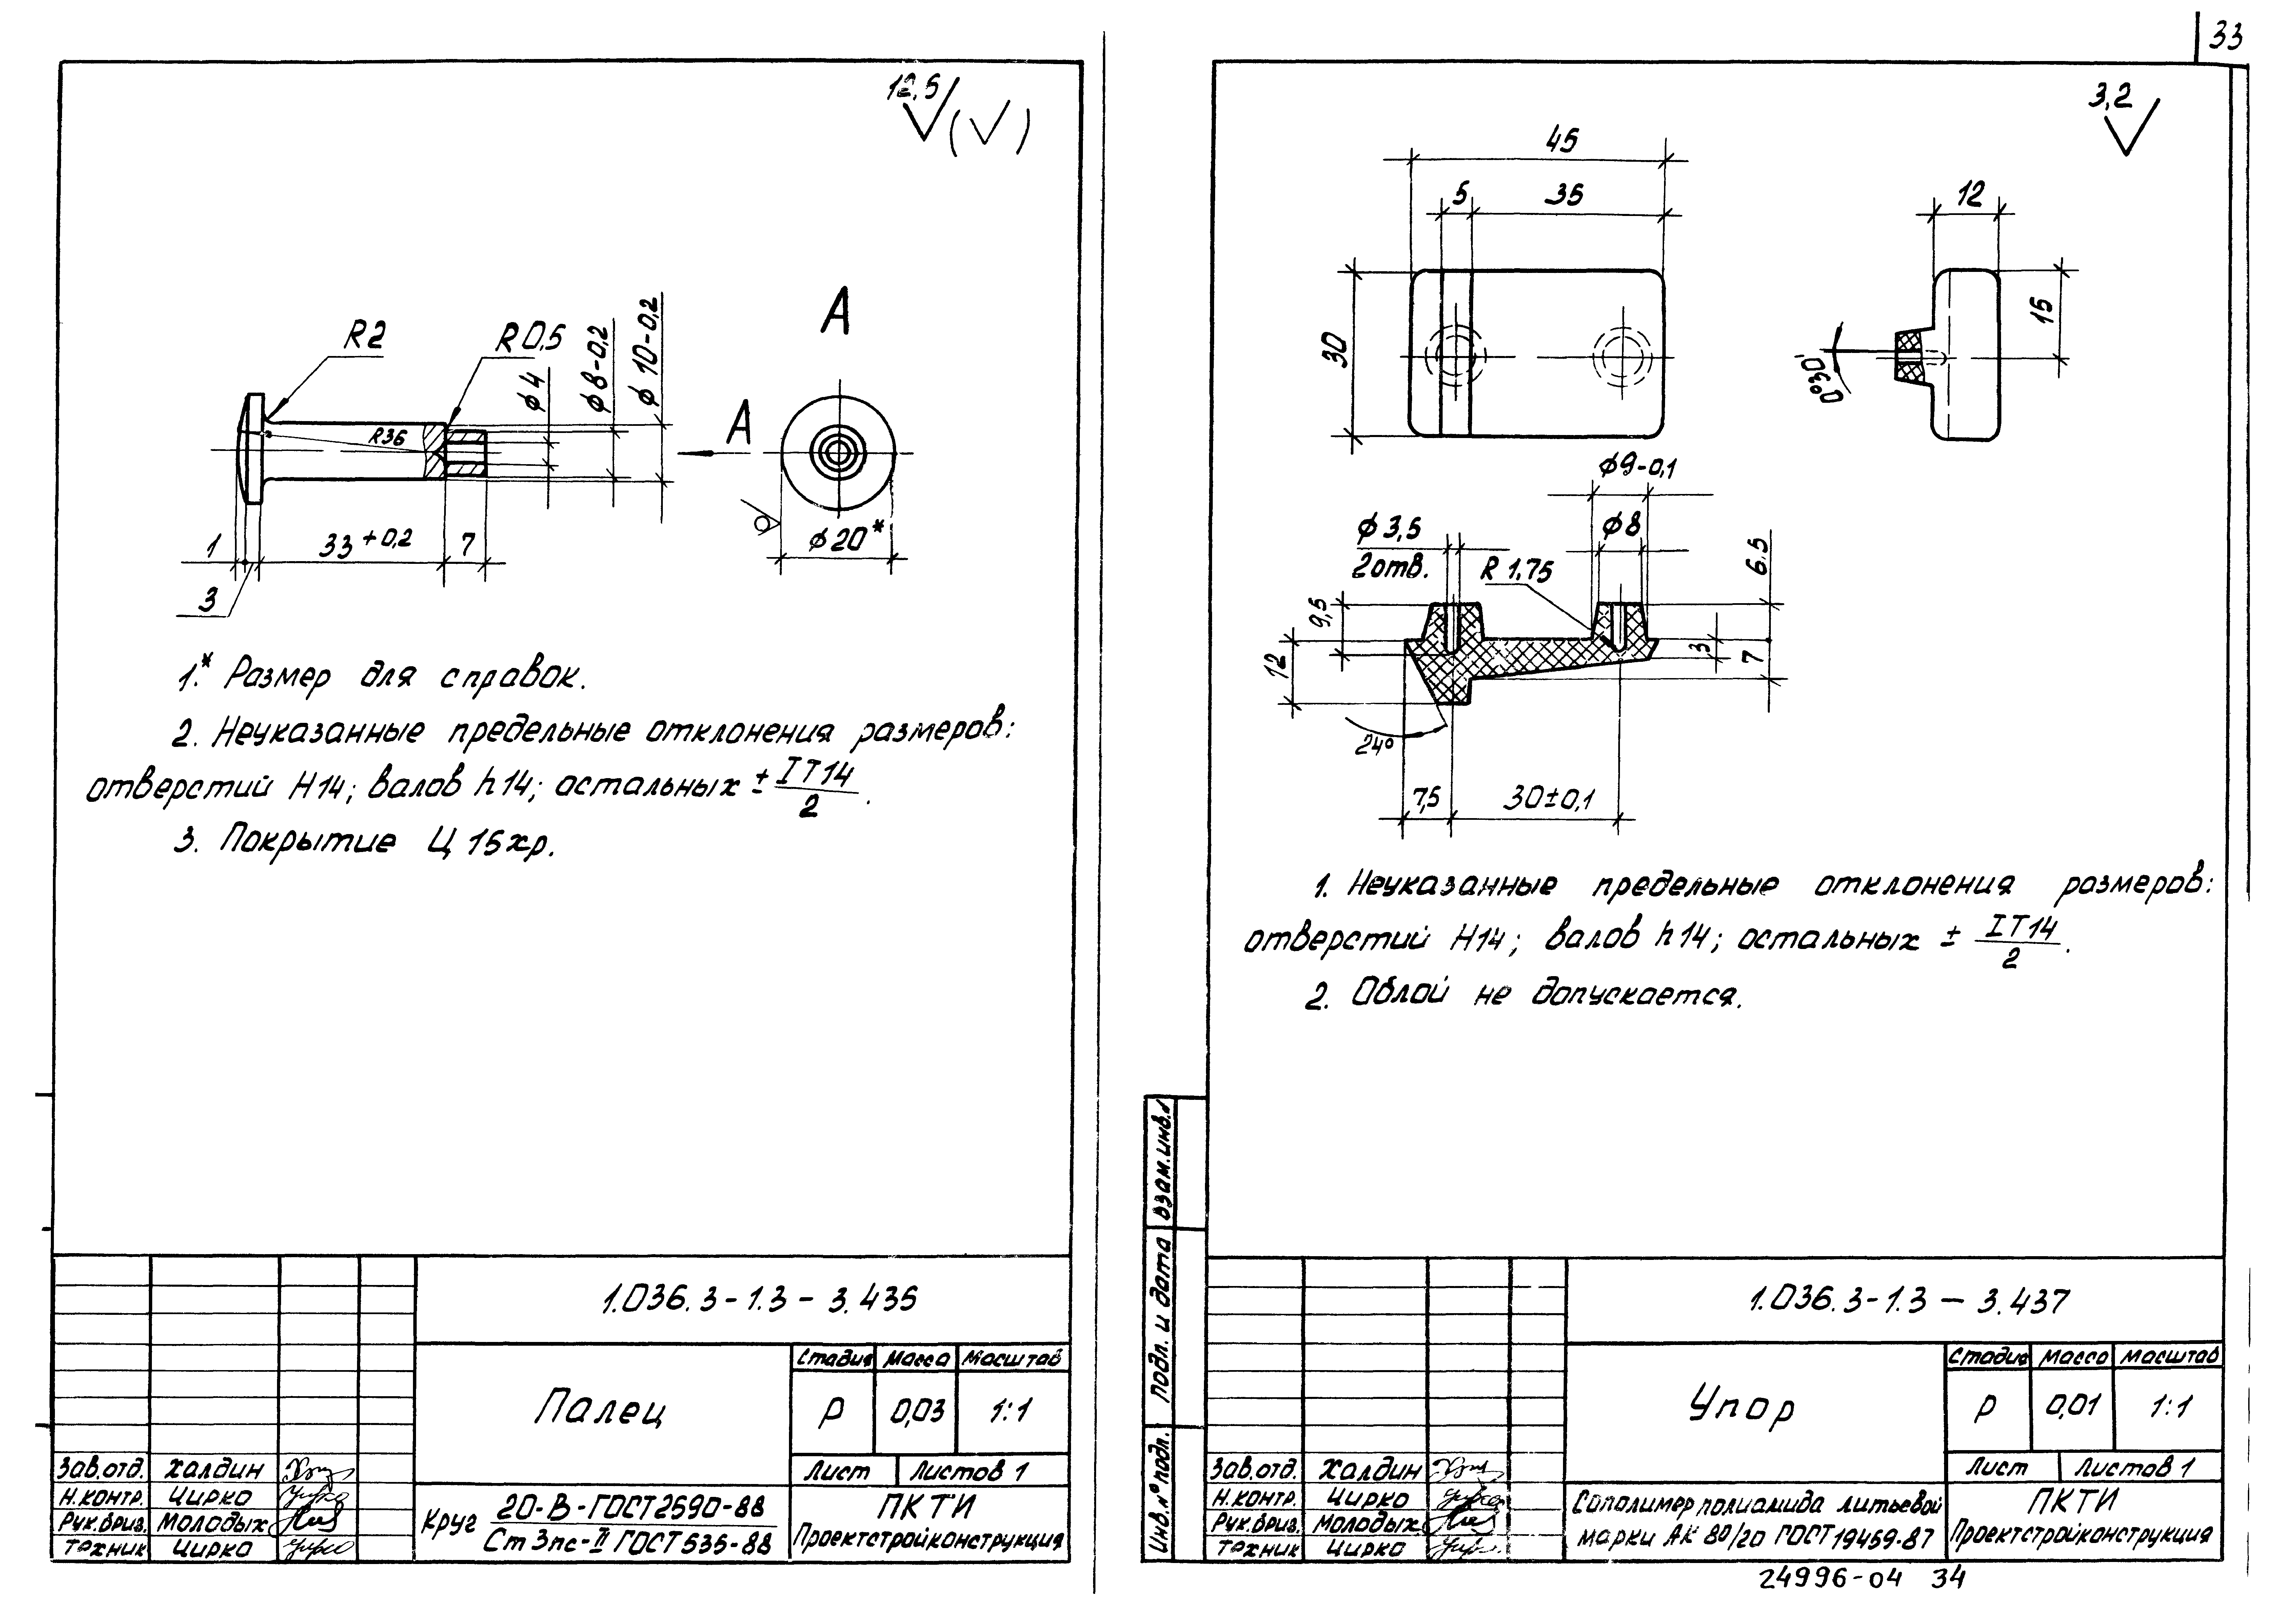 33
12,5
(√)
R2
R 0,5
ϕ 4
ϕ 8-0,2
ϕ 10-0,2
А
А
R36
1
33+0,2
7
3
ϕ20*
1.* Размер для справок.
2. Неуказанные предельные отклонения размеров:
отверстий H14; валов h14; остальных ± IT14/2.
3. Покрытие Ц 15хр.
1.036.3-1.3-3.435
Палец
Стадия Масса Масштаб
Р 0,03 1:1
Лист Листов 1
Зав.отд. Халдин
Н.контр. Цирко
Рук.бриг. Молодых
Техник Цирко
Круг 20-В-ГОСТ2590-88
Ст3пс-II ГОСТ535-88
ПКТИ
Проектстройконструкция
3,2
45
5
35
30
12
15
0°30'
ϕ9-0,1
ϕ 3,5
2отв.
ϕ8
R 1,75
6,5
9,5
12
3
7
24°
7,5
30±0,1
1. Неуказанные предельные отклонения размеров:
отверстий H14; валов h14; остальных ± IT14/2.
2. Облой не допускается.
Взам.инв.
Подп. и дата
Инв.№ подл.
1.036.3-1.3-3.437
Упор
Стадия Масса Масштаб
Р 0,01 1:1
Лист Листов 1
Зав.отд. Халдин
Н.контр. Цирко
Рук.бриг. Молодых
Техник Цирко
Сополимер полиамида литьевой
марки АК 80/20 ГОСТ19459-87
ПКТИ
Проектстройконструкция
24996-04 34